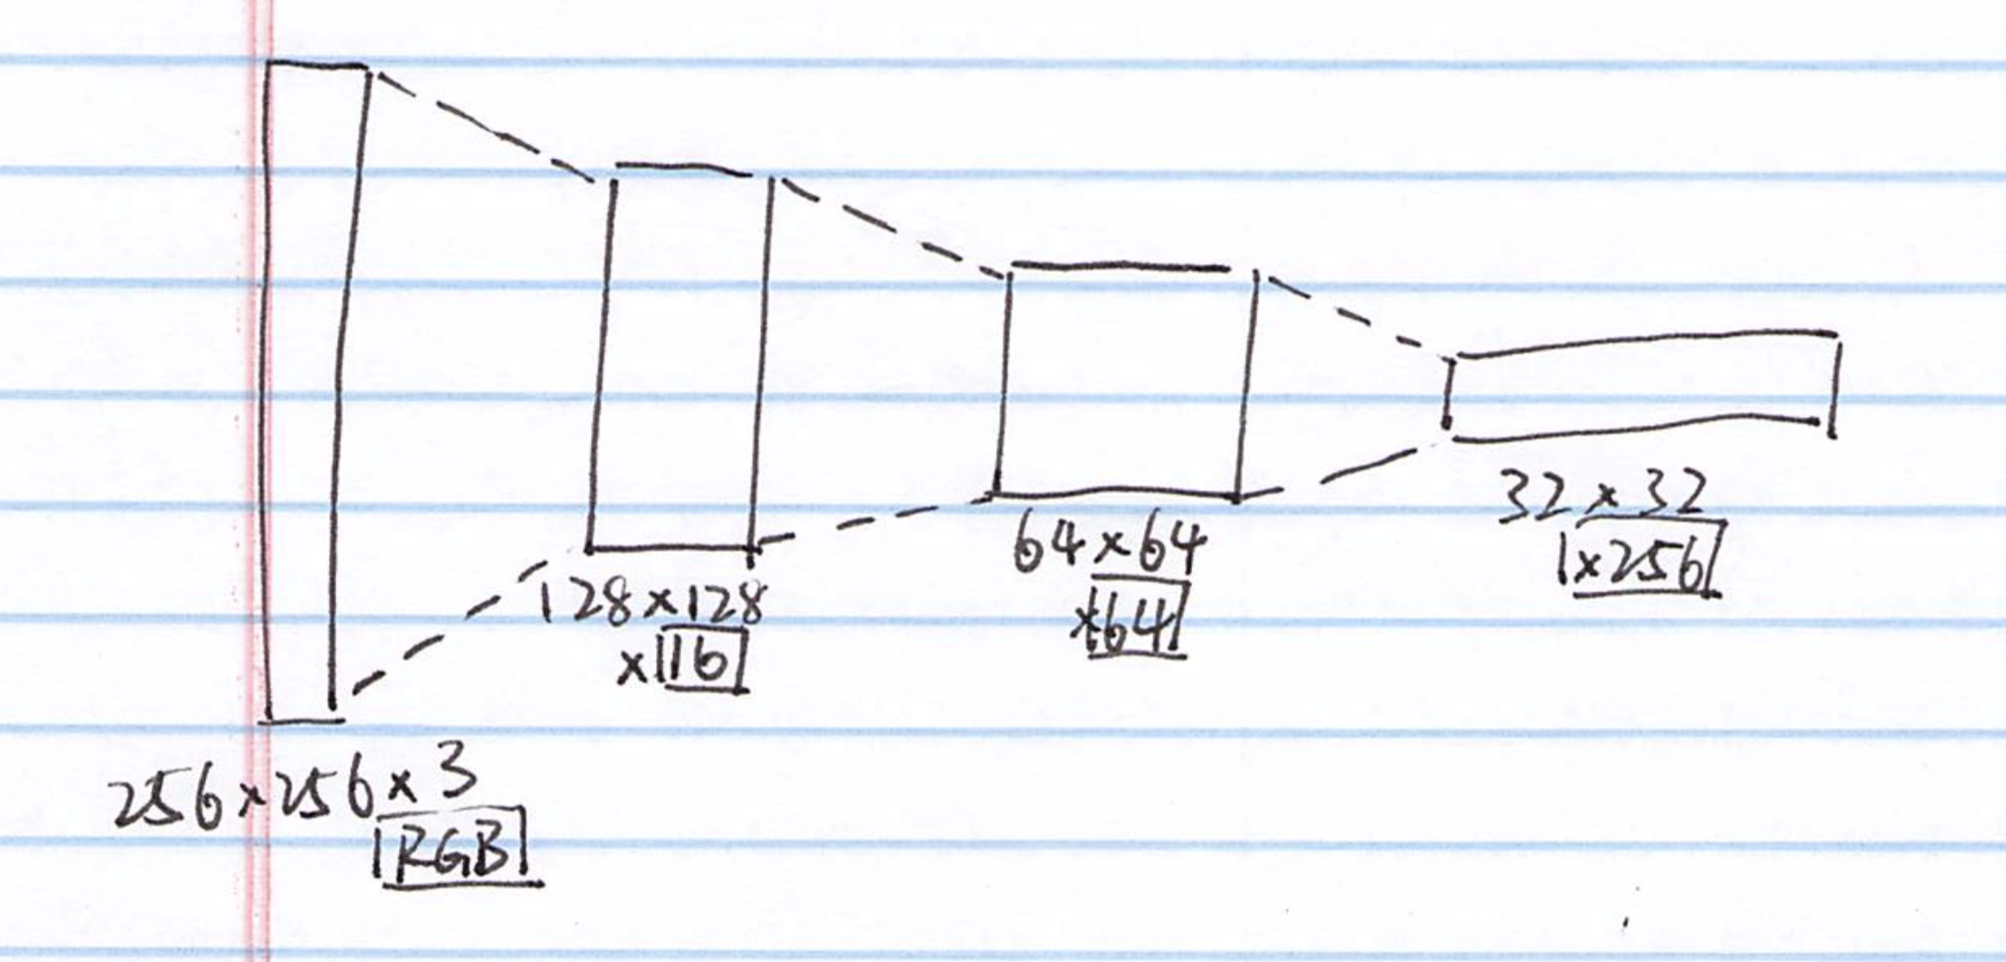 256×256×3
RGB
128×128
×16
64×64
×64
32×32
×256